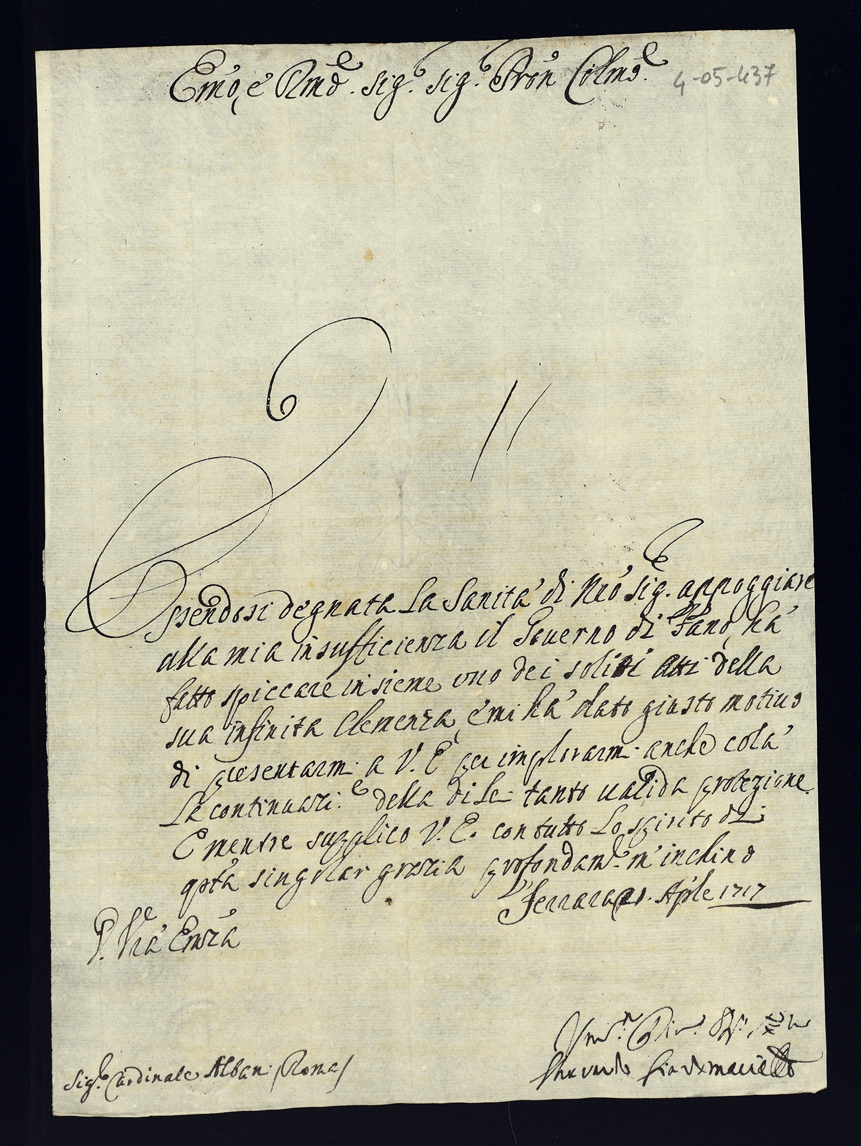 Emo, e Rmo. Sig.r Sig.r Pron Colmo.
4-05-437
Essendosi degnata La Santità di Nrō Sig.re appoggiare
alla mia insufficienza il Governo di Fano, hà
fatto spiccare insieme uno dei soliti atti della
sua infinita Clemenza, e mi hà dato giusto motivo
di presentarmi a V. E. per implorarmi anche colà
La continuaz.e della di Lei tanto valida protezione.
E mentre supplico V. E. con tutto Lo spirito di
qstà singular grazia profondam.te m'inchino
Ferrara 21. Aple 1717
D. Vrā Emza
Um.o
Sig.r Cardinale Albani Roma